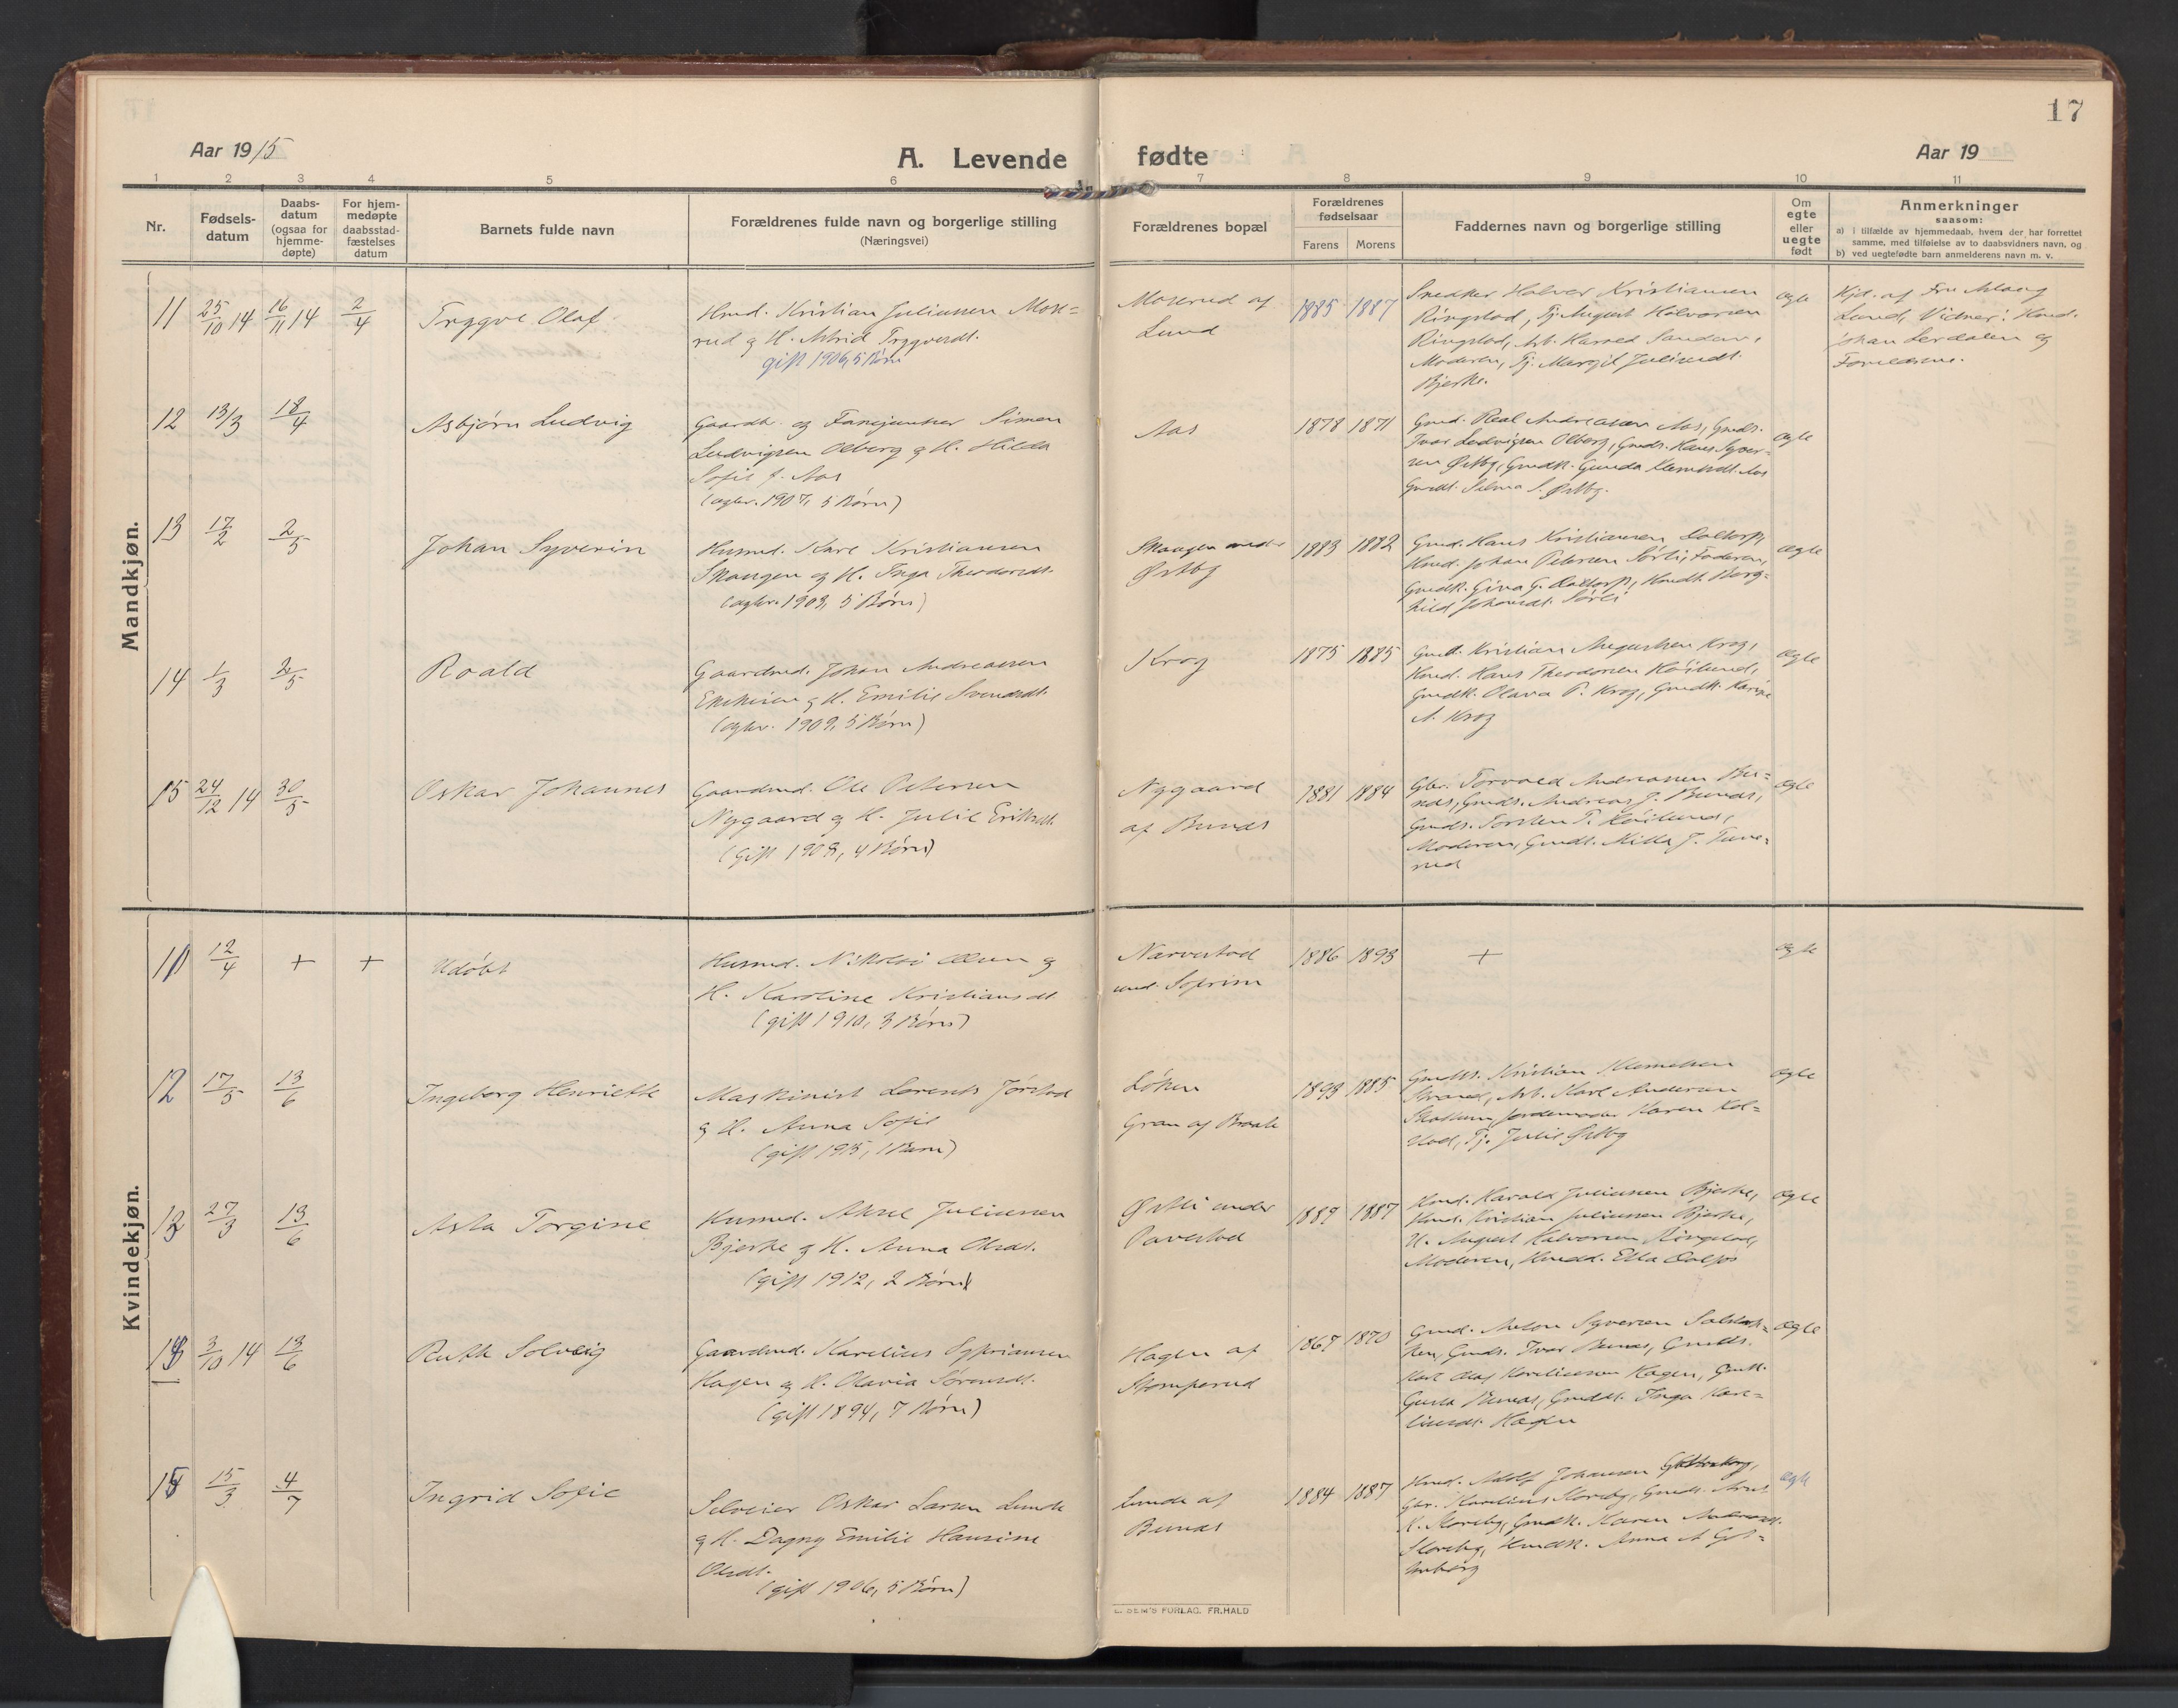 17
Aar 1915
A. Levende fødte
Aar 19
1 2 3 4 5 6 7 8 9 10 11
Nr.
Fødsels-
datum
Daabs-
datum
(ogsaa for
hjemme-
døpte)
For hjem-
medøpte
daabsstad-
fæstelses
datum
Barnets fulde navn
Forældrenes fulde navn og borgerlige stilling
(Næringsvei)
Forældrenes bopæl
Forældrenes
fødselsaar
Farens Morens
Faddernes navn og borgerlige stilling
Om
egte
eller
uegte
født
Anmerkninger
saasom:
a) i tilfælde av hjemmedaab, hvem der har forrettet
samme, med tilføielse av to daabsvidners navn, og
b) ved uegtefødte barn anmelderens navn m. v.
Mandkjøn.
11 25/10 14 16/11 14 2/4
Trygve Olaf
Hmd. Kristian Juliussen Mose=
rud og H. Astrid Trygvesdt.
gift 1906, 5 Børn
Moserud af
Lund
1885 1887
Snedker Halvor Kristiansen
Ringstad, Tj. August Halvorsen
Ringstad, Arb. Harald
Moderen, Tj. Margit Juliusdt.
Bjerke.
egte
Hjd. af Fru Aslaug
Lund, Vidner: Hmd.
Johan Lerdalen og
Forældrene.
12 13/3 18/4
Asbjørn Ludvig
Gaardbr. og Fanejunker Simen
Ludvigsen Olberg og H. Hilda
Sofie f. Aas
(egtev. 1907, 5 Børn)
Aas
1878 1871
Gmd. Real Andreassen Aas, Gmds.
Ivar Ludvigsen Olberg, Gmds. Hans Syver=
sen Østby, Gmdk. Gunda Klemetsdt. Aas
Gmdt. Selma S. Østby.
egte
13 17/2 2/5
Johan Syverin
Husmd. Karl Kristiansen
Skaugen og H. Inga Theodorsdt.
(egtev. 1903, 5 Børn)
Skaugen under
Østby
1883 1882
Gmd. Hans Kristiansen Daltorp,
Hmd. Johan Petersen Sørli, Faderen,
Gmdk. Gina G. Daltorp, Hmdt. Borg=
hild Johansdt. Sørli
Ægte
14 1/3 2/5
Roald
Gaardmd. Johan Andreassen
og H. Emilie Svendsdt.
(egtev. 1909, 5 Børn)
Krog
1875 1885
Gmd. Kristian Augustsen Krog,
Hmd. Hans Theodorsen Høilund,
Gmdk. Olava P. Krog, Gmdk. Karine
A. Krog
Ægte
15 24/12 14 30/5
Oskar Johannes
Gaardmd. Ole Petersen
Nygaard og H. Julie Eriksdt.
(gift 1909, 4 Børn)
Nygaard
af Bunæs
1881 1884
Gbr. Torvald Andreassen Bu=
næs, Gmds. Andreas J. Bunæs,
Gmds. Torsten T. Høilund,
Moderen, Gmdt. Milla J. Tune=
rud
Ægte
Kvindekjøn.
11 12/4 + +
Udøbt
Husmd. Nikolai Olsen og
H. Karoline Kristiansdt.
(gift 1910, 3 Børn)
Narvestad
und. Soprim
1886 1893
+
egte
12 17/5 13/6
Ingeborg Henriette
Maskinist Lorents Jørstad
og H. Anna Sofie
(gift 1915, 1 Barn)
Løken
Gran af Braate
1893 1885
Gmds. Kristian Klemetsen
Strand, Arb. Karl Andersen
Skattum, Jordemoder Karen Kol=
stad, Tj. Julie Østby
egte
13 27/3 13/6
Asta Torgine
Husmd. Aksel Juliussen
Bjerke og H. Anna Olsdt.
(gift 1912, 2 Børn)
Østli under
Tavestad
1889 1887
Hmd. Harald Juliussen Bjerke,
Hmd. Kristian Juliussen Bjerke,
U. August Halvorsen Ringstad,
Moderen, Hmdd. Ella
egte
14 3/10 14 13/6
Ruth Solveig
Gaardmd. Karelius Sypriansen
Hagen og H. Olavia Sørensdt.
(gift 1894, 7 Børn)
Hagen af
Stomperud
1867 1870
Gmd. Anton Syversen
Gmds. Ivar Bunæs, Gmds.
Karl Olaf Kareliussen Hagen, Gmdk.
Gusta Bunæs, Gmdt. Inga Kare=
liusdt. Hagen
Ægte
15 15/3 4/7
Ingrid Sofie
Selveier Oskar Larsen Lunde
og H. Dagny Emilie Hansine
Olsdt.
(gift 1906, 5 Børn)
Lunde af
Bunæs
1884 1887
Hmd. Adolf Johansen
Gbr. Karelius Storeby, Gmds.
K. Storeby, Gmdk. Karen
Storeby, Hmdk. Anna A.
Ægte
E. SEM'S FORLAG. FR.HALD